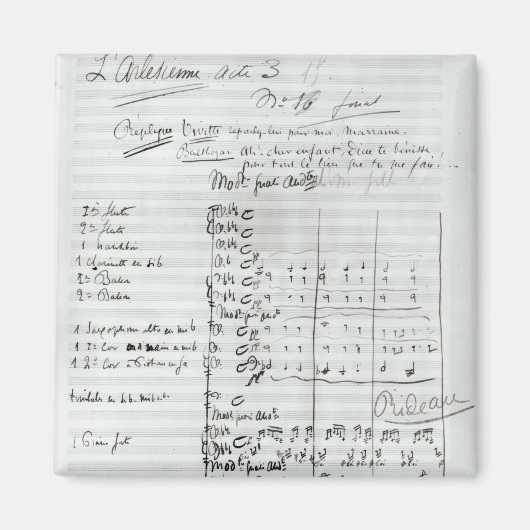 L'Arlésienne acte 3 15
No 16 final
Réplique Vivette regardez-les pour moi, Marraine.
Balthazar Ah! cher enfant, Dieu te bénisse
pour tout le bien que tu me fais!...
Modto quasi Andte
1re flûte
2e flûte
1 hautbois
1 clarinette en sib
1er Basson
2e Basson
Modto quasi Andte
1 Saxophone alto en mib
1 1er Cor à main en mib
1 2e Cor à Pistons en fa
timbales en sib. mib.
Rideau
Modto quasi Andte
1 Piano forte
Modto quasi Andte